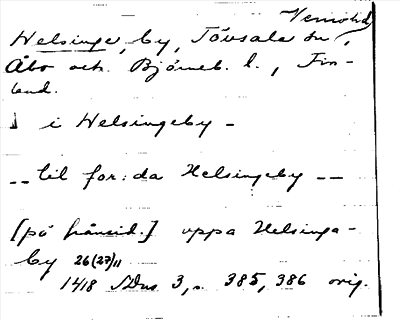 Vemo hd
Helsinge, by, Tövsala sn,
Åbo och Björneb. l., Fin-
land.
i Helsingeby –
-- til for:da Helsingeby --
[på frånsid.] uppa Helsinga-
by 26(27)/11
1418 SDns 3, s. 385, 386 orig.